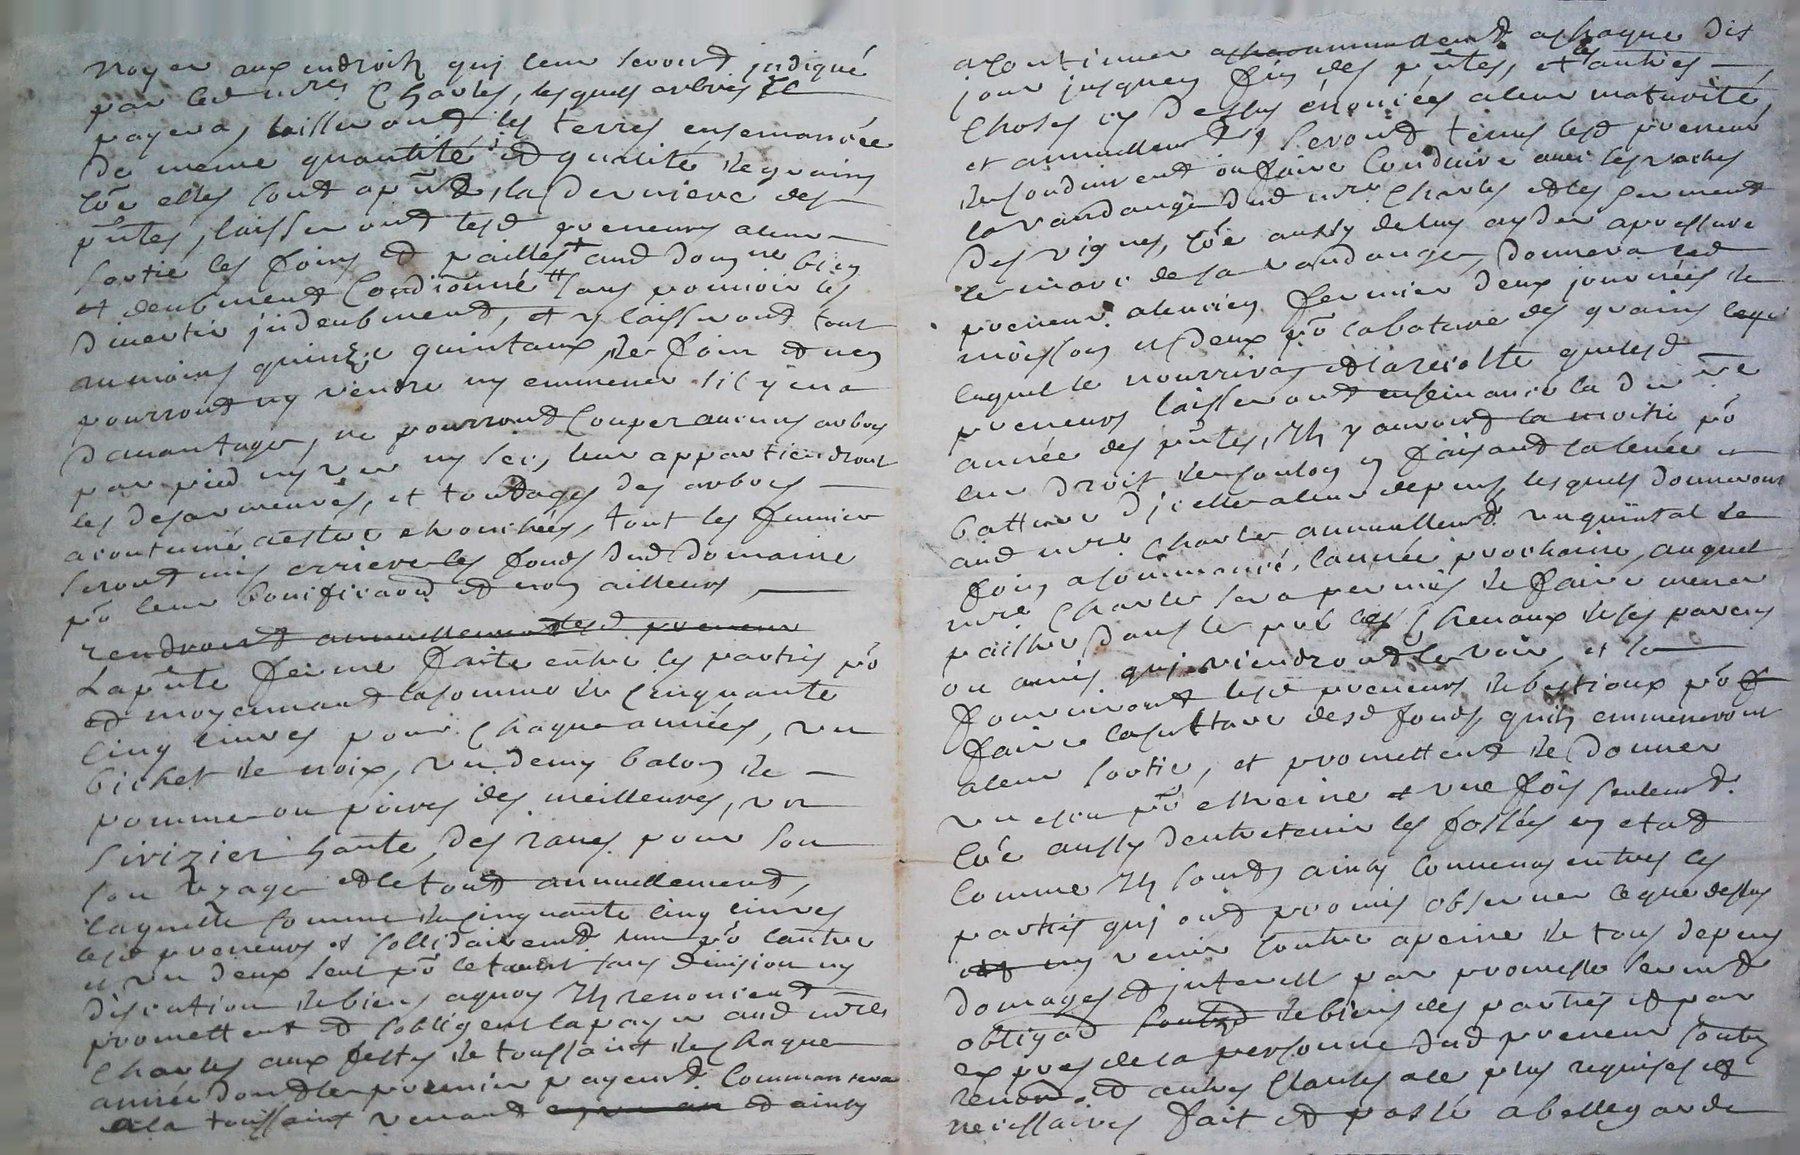 noyer aux endroits quj leur seront jndiqué
par led mre Charles, lesquels arbres il
payera, laisseront les terres ensemancée
de meme quantité et qualité de grains
côe elles sont apñt, la derniere des
pñtes, laisseront lesd preneurs aleur
sortie les foins et pailles aud domne bien
et deubment Condiônné sans pouuoir les
diuertir jndeubment, et y laisseront tout
aumoins quinze quintaux de foin et nen
pourront ny vendre ny emmener sil y en a
dauantage, ne pourront Couper aucuns arbres
par pied ny ver ny sec, leur appartiendront
les desarmeures, et tondages des arbres
acoutumé aestre ebronchées, tout les fumier
seront mis erriere les fonds dud domaine
pô leur bonificaôn et non ailleurs
rendront annuellement lesd preneur
Lapñte ferme faite entre les partis pô
et moyennant lasomme de Cinquante
Cinq liures pour Chaque années, un
bichet de noix, un demy balon de
pomme ou poires des meilleures, un
sirizier hante, des raues pour son
son vzage et le tout annuellement,
laquelle somme de cinquante cinq liures
lesd preneurs et sollidairement lun pô lautre
et un deux seul pô letout sans diuision ny
discution de biens aquoy ils renoncent
promettent et sobligent lapayer aud mre
Charles aux festes de toussaint de Chaque
année dont le premier payement Commansera
ala toussaint venant et ainsy
acontinuer annuellement achaque dis
jour jusquen fin des pñtes, et les autres
Choses cy dessus énoncées aleur maturité,
et annuellemt, seront tenus lesd preneur
de conduire et ou faire Conduire auec les vaches
la vandange dud mre Charles et les serment
des vignes, côe aussy deluy ayder apressure
le marc de sa vandange, donnera led
preneur alencien fermier deux journées de
moisson et deux pô labature des grains
laquelle nourriray et la recolte quelesd
preneurs laisseront ensemancée la dernre
année des pñtes, ils y auront la moitié pô
leur droit de coulon en faisant la leuée et
batture djcelle aleur depens, lesquels donneront
aud mre Charles annuellemt un quintal de
foin acommancé lannée prochaine, auquel
mre Charles sera permis de faire mener
pailler dans le pré les Cheuaux de ses parens
ou amis quj viendront le voir, et le
fourniront lesd preneurs de bestiaux pô
faire la culture desd fonds, quils emmeneront
aleur sortie, et promettent de donner
un escu pô etreine et une fois seulemt
côe aussy dentretenir les fossées en etat
Comme ils sont, ainsy Conuenus entres les
partis quj ont promis obseruer ceque dessus
ny venir contre apeine de tous depens
domages et jnterest par promesse serment
obligaôn de biens des partis et par
expres de la personne dud preneur soubz
renon. et autres Clauses ace plus requises et
necessaires fait et passé abellegarde